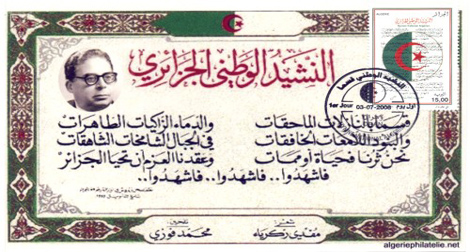 النشيد الوطني الجزائري
النشيد الوطني قسما
1er Jour 03-07-2008
15,00
قسما بالنازلات الماحقات والدماء الزاكيات الطاهرات
والبنود اللامعات الخافقات في الجبال الشامخات الشاهقات
نحن ثرنا فحياة أو ممات وعقدنا العزم أن تحيا الجزائر
فاشهدوا.. فاشهدوا.. فاشهدوا..
شعر:
مفدي زكرياء
تلحين:
محمد فوزي
algeriephilatelie.net